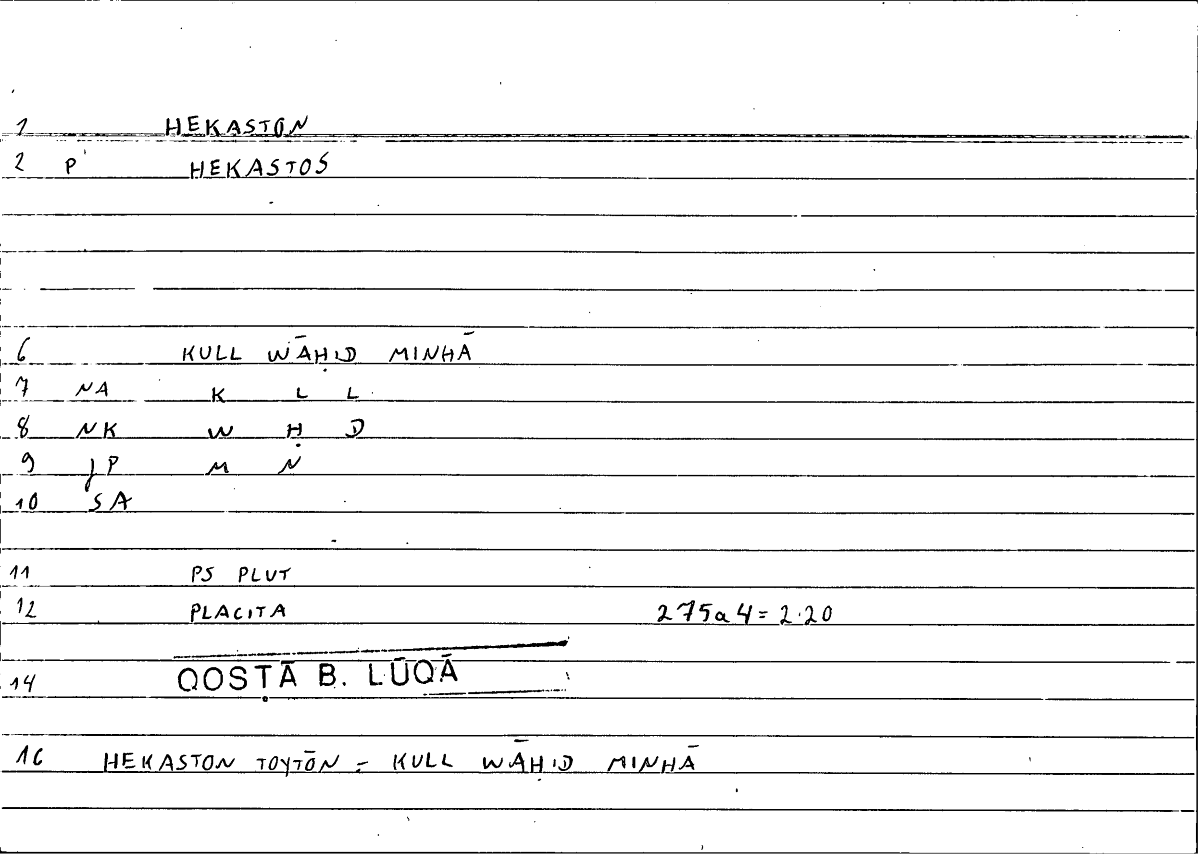 1 HEKASTON
2 P HEKASTOS
6 KULL WĀḤID MINHĀ
7 NA K L L
8 NK W Ḥ D
9 JP M N
10 SA
11 PS PLUT
12 PLACITA 275a4=2.20
14 QOSṬĀ B. LŪQĀ
16 HEKASTON TOYTŌN = KULL WĀḤID MINHĀ